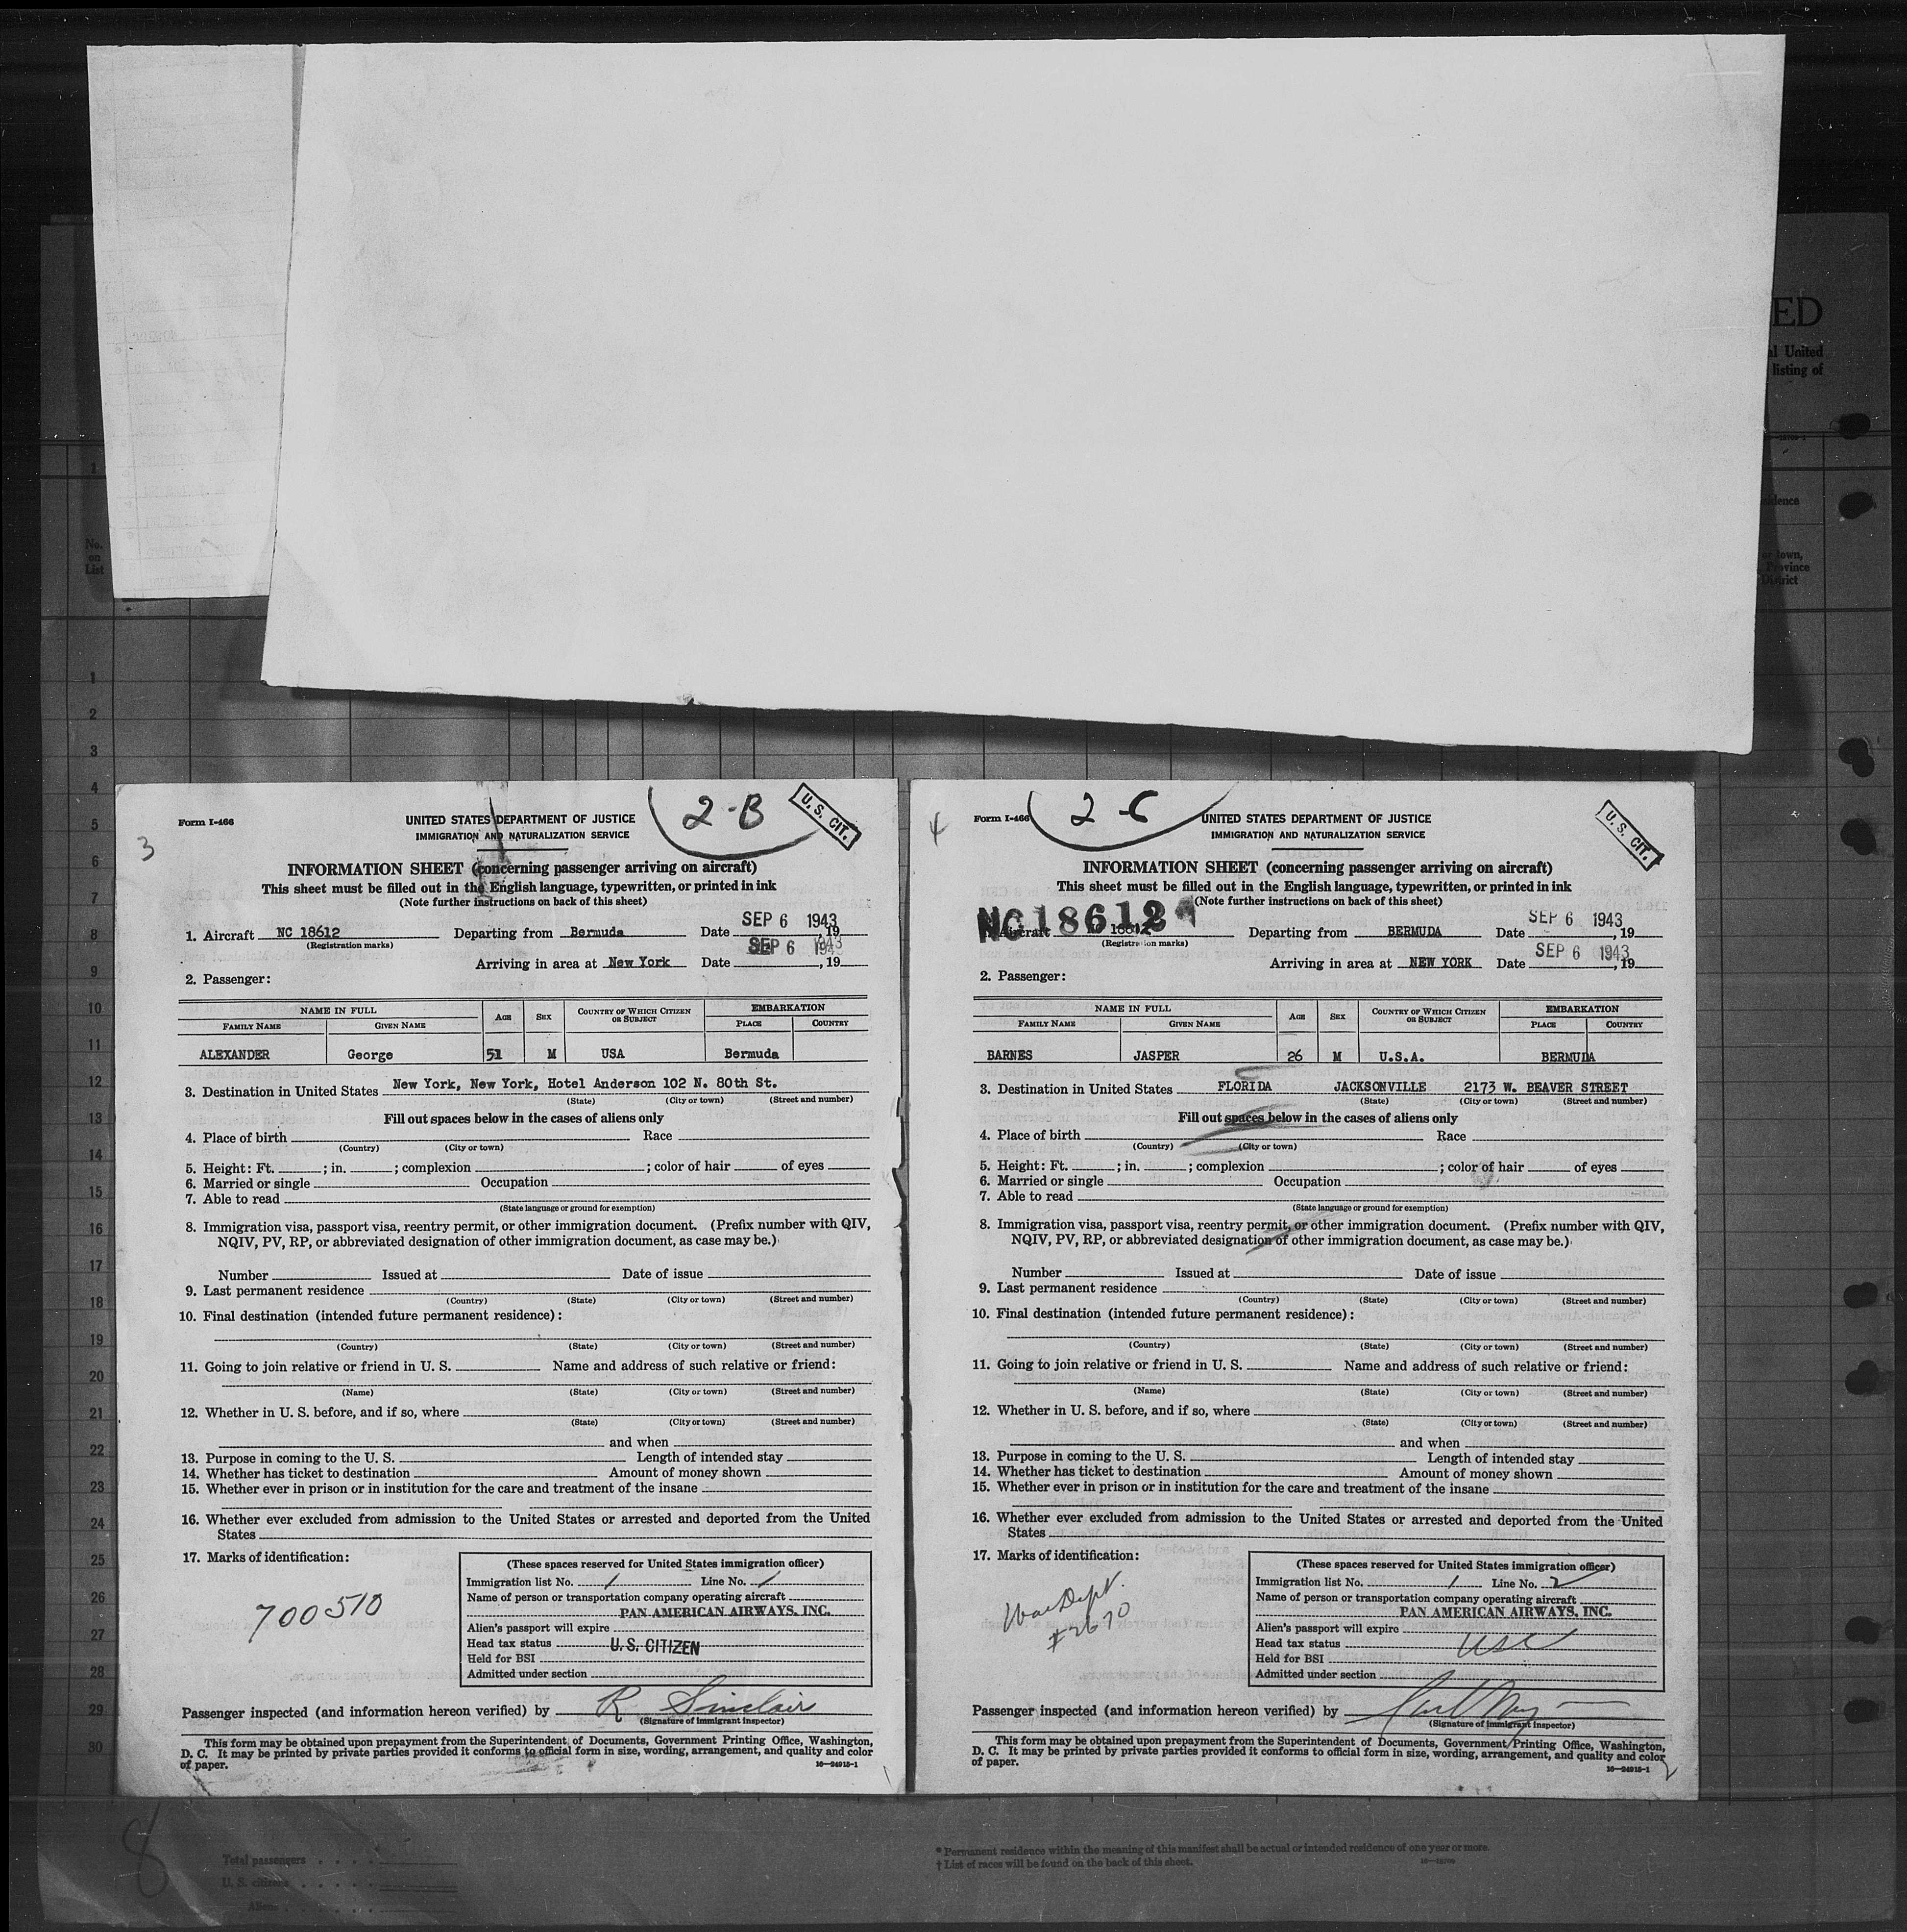 ED
al United
listing of
dence
or town,
Province
District
No.
on
List
1
1
2
3
4
5
6
7
8
9
10
11
12
13
14
15
16
17
18
19
20
21
22
23
24
25
26
27
28
29
30
3
Form I-466
2-B
U. S. CIT.
UNITED STATES DEPARTMENT OF JUSTICE
IMMIGRATION AND NATURALIZATION SERVICE
INFORMATION SHEET (concerning passenger arriving on aircraft)
This sheet must be filled out in the English language, typewritten, or printed in ink
(Note further instructions on back of this sheet)
SEP 6 1943
1. Aircraft NC 18612 Departing from Bermuda Date , 19
(Registration marks)
SEP 6 1943
Arriving in area at New York Date , 19
2. Passenger:
NAME IN FULL AGE SEX COUNTRY OF WHICH CITIZEN OR SUBJECT EMBARKATION
FAMILY NAME GIVEN NAME PLACE COUNTRY
ALEXANDER George 51 M USA Bermuda
3. Destination in United States New York, New York, Hotel Anderson 102 N. 80th St.
(State) (City or town) (Street and number)
Fill out spaces below in the cases of aliens only
4. Place of birth Race
(Country) (City or town)
5. Height: Ft. ; in. ; complexion ; color of hair of eyes
6. Married or single Occupation
7. Able to read
(State language or ground for exemption)
8. Immigration visa, passport visa, reentry permit, or other immigration document. (Prefix number with QIV,
NQIV, PV, RP, or abbreviated designation of other immigration document, as case may be.)
Number Issued at Date of issue
9. Last permanent residence
(Country) (State) (City or town) (Street and number)
10. Final destination (intended future permanent residence):
(Country) (State) (City or town) (Street and number)
11. Going to join relative or friend in U. S. Name and address of such relative or friend:
(Name) (State) (City or town) (Street and number)
12. Whether in U. S. before, and if so, where
(State) (City or town) (Street and number)
and when
13. Purpose in coming to the U. S. Length of intended stay
14. Whether has ticket to destination Amount of money shown
15. Whether ever in prison or in institution for the care and treatment of the insane
16. Whether ever excluded from admission to the United States or arrested and deported from the United
States
17. Marks of identification:
700510
(These spaces reserved for United States immigration officer)
Immigration list No. 1 Line No. 1
Name of person or transportation company operating aircraft
PAN AMERICAN AIRWAYS, INC.
Alien's passport will expire
Head tax status U. S. CITIZEN
Held for BSI
Admitted under section
Passenger inspected (and information hereon verified) by R Sinclair
(Signature of immigrant inspector)
This form may be obtained upon prepayment from the Superintendent of Documents, Government Printing Office, Washington,
D. C. It may be printed by private parties provided it conforms to official form in size, wording, arrangement, and quality and color
of paper.
16—24915-1
4
Form I-466
2-C
U. S. CIT.
UNITED STATES DEPARTMENT OF JUSTICE
IMMIGRATION AND NATURALIZATION SERVICE
INFORMATION SHEET (concerning passenger arriving on aircraft)
This sheet must be filled out in the English language, typewritten, or printed in ink
(Note further instructions on back of this sheet)
NC 18612
SEP 6 1943
1. Aircraft 18612 Departing from BERMUDA Date , 19
(Registration marks)
SEP 6 1943
Arriving in area at NEW YORK Date , 19
2. Passenger:
NAME IN FULL AGE SEX COUNTRY OF WHICH CITIZEN OR SUBJECT EMBARKATION
FAMILY NAME GIVEN NAME PLACE COUNTRY
BARNES JASPER 26 M U.S.A. BERMUDA
3. Destination in United States FLORIDA JACKSONVILLE 2173 W. BEAVER STREET
(State) (City or town) (Street and number)
Fill out spaces below in the cases of aliens only
4. Place of birth Race
(Country) (City or town)
5. Height: Ft. ; in. ; complexion ; color of hair of eyes
6. Married or single Occupation
7. Able to read
(State language or ground for exemption)
8. Immigration visa, passport visa, reentry permit, or other immigration document. (Prefix number with QIV,
NQIV, PV, RP, or abbreviated designation of other immigration document, as case may be.)
Number Issued at Date of issue
9. Last permanent residence
(Country) (State) (City or town) (Street and number)
10. Final destination (intended future permanent residence):
(Country) (State) (City or town) (Street and number)
11. Going to join relative or friend in U. S. Name and address of such relative or friend:
(Name) (State) (City or town) (Street and number)
12. Whether in U. S. before, and if so, where
(State) (City or town) (Street and number)
and when
13. Purpose in coming to the U. S. Length of intended stay
14. Whether has ticket to destination Amount of money shown
15. Whether ever in prison or in institution for the care and treatment of the insane
16. Whether ever excluded from admission to the United States or arrested and deported from the United
States
17. Marks of identification:
War Dept.
#2670
(These spaces reserved for United States immigration officer)
Immigration list No. 1 Line No. 2
Name of person or transportation company operating aircraft
PAN AMERICAN AIRWAYS, INC.
Alien's passport will expire
Head tax status USC
Held for BSI
Admitted under section
Passenger inspected (and information hereon verified) by
(Signature of immigrant inspector)
This form may be obtained upon prepayment from the Superintendent of Documents, Government Printing Office, Washington,
D. C. It may be printed by private parties provided it conforms to official form in size, wording, arrangement, and quality and color
of paper.
16—24915-1
8
Total passengers
U. S. citizens
Aliens
* Permanent residence within the meaning of this manifest shall be actual or intended residence of one year or more.
† List of races will be found on the back of this sheet.